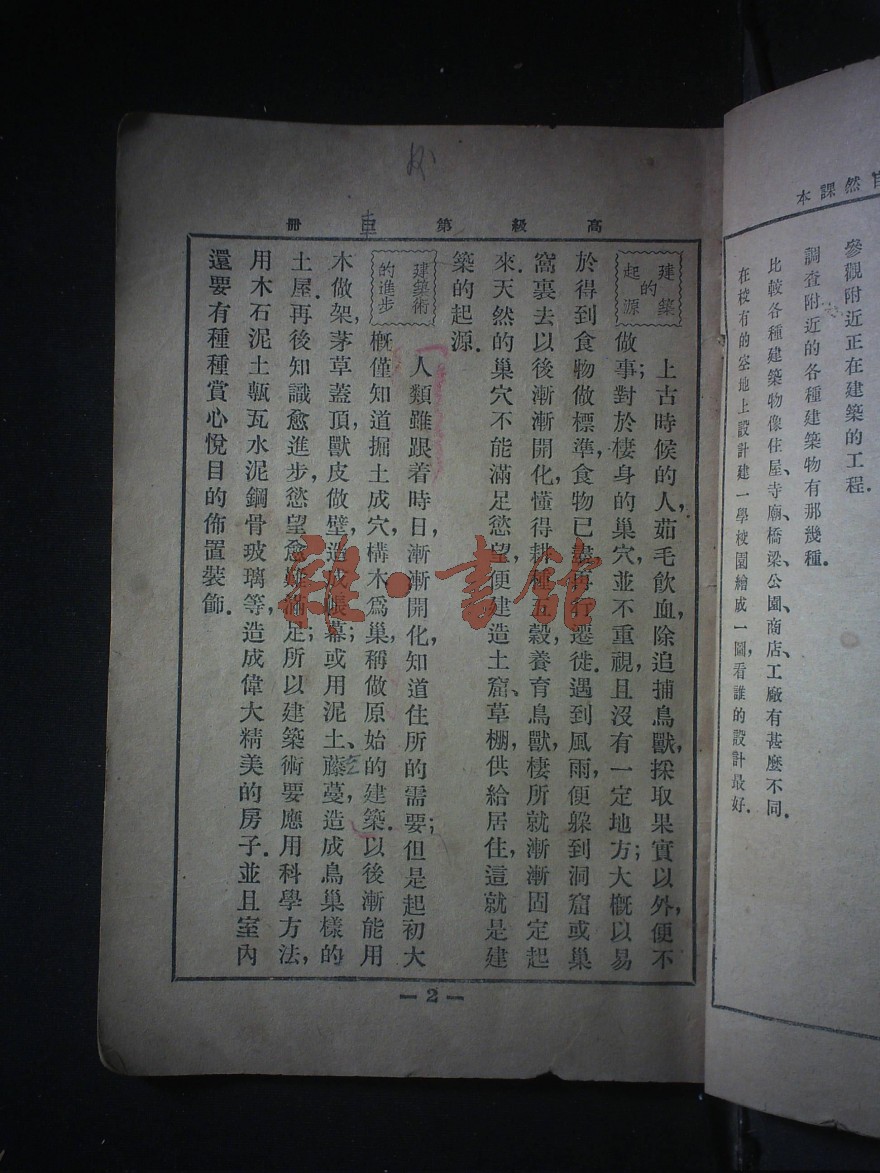 自然課本
參觀附近正在建築的工程.
調查附近的各種建築物有那幾種.
比較各種建築物像住屋、寺廟、橋梁、公園、商店、工廠有甚麼不同.
在校有的空地上設計建一學校園繪成一圖,看誰的設計最好.
高級第 冊
建築的起源
上古時候的人,茹毛飲血,除追捕鳥獸,採取果實以外,便不
做事;對於棲身的巢穴,並不重視,且沒有一定地方;大概以易
於得到食物做標準,食物已 再行遷徙.遇到風雨,便躲到洞窟或巢
窩裏去以後漸漸開化,懂得耕種五穀,養育鳥獸,棲所就漸漸固定起
來.天然的巢穴不能滿足慾望,便建造土窟、草棚,供給居住,這就是建
築的起源.
建築術的進步
人類雖跟着時日,漸漸開化,知道住所的需要;但是起初大
概僅知道掘土成穴,構木爲巢,稱做原始的建築.以後漸能用
木做架,茅草蓋頂,獸皮做壁,造成帳幕;或用泥土、藤蔓,造成鳥巢樣的
土屋.再後知識愈進步,慾望愈難滿足;所以建築術要應用科學方法,
用木石泥土甎瓦水泥鋼骨玻璃等,造成偉大精美的房子.並且室內
還要有種種賞心悅目的佈置裝飾.
— 2 —
雜·書館